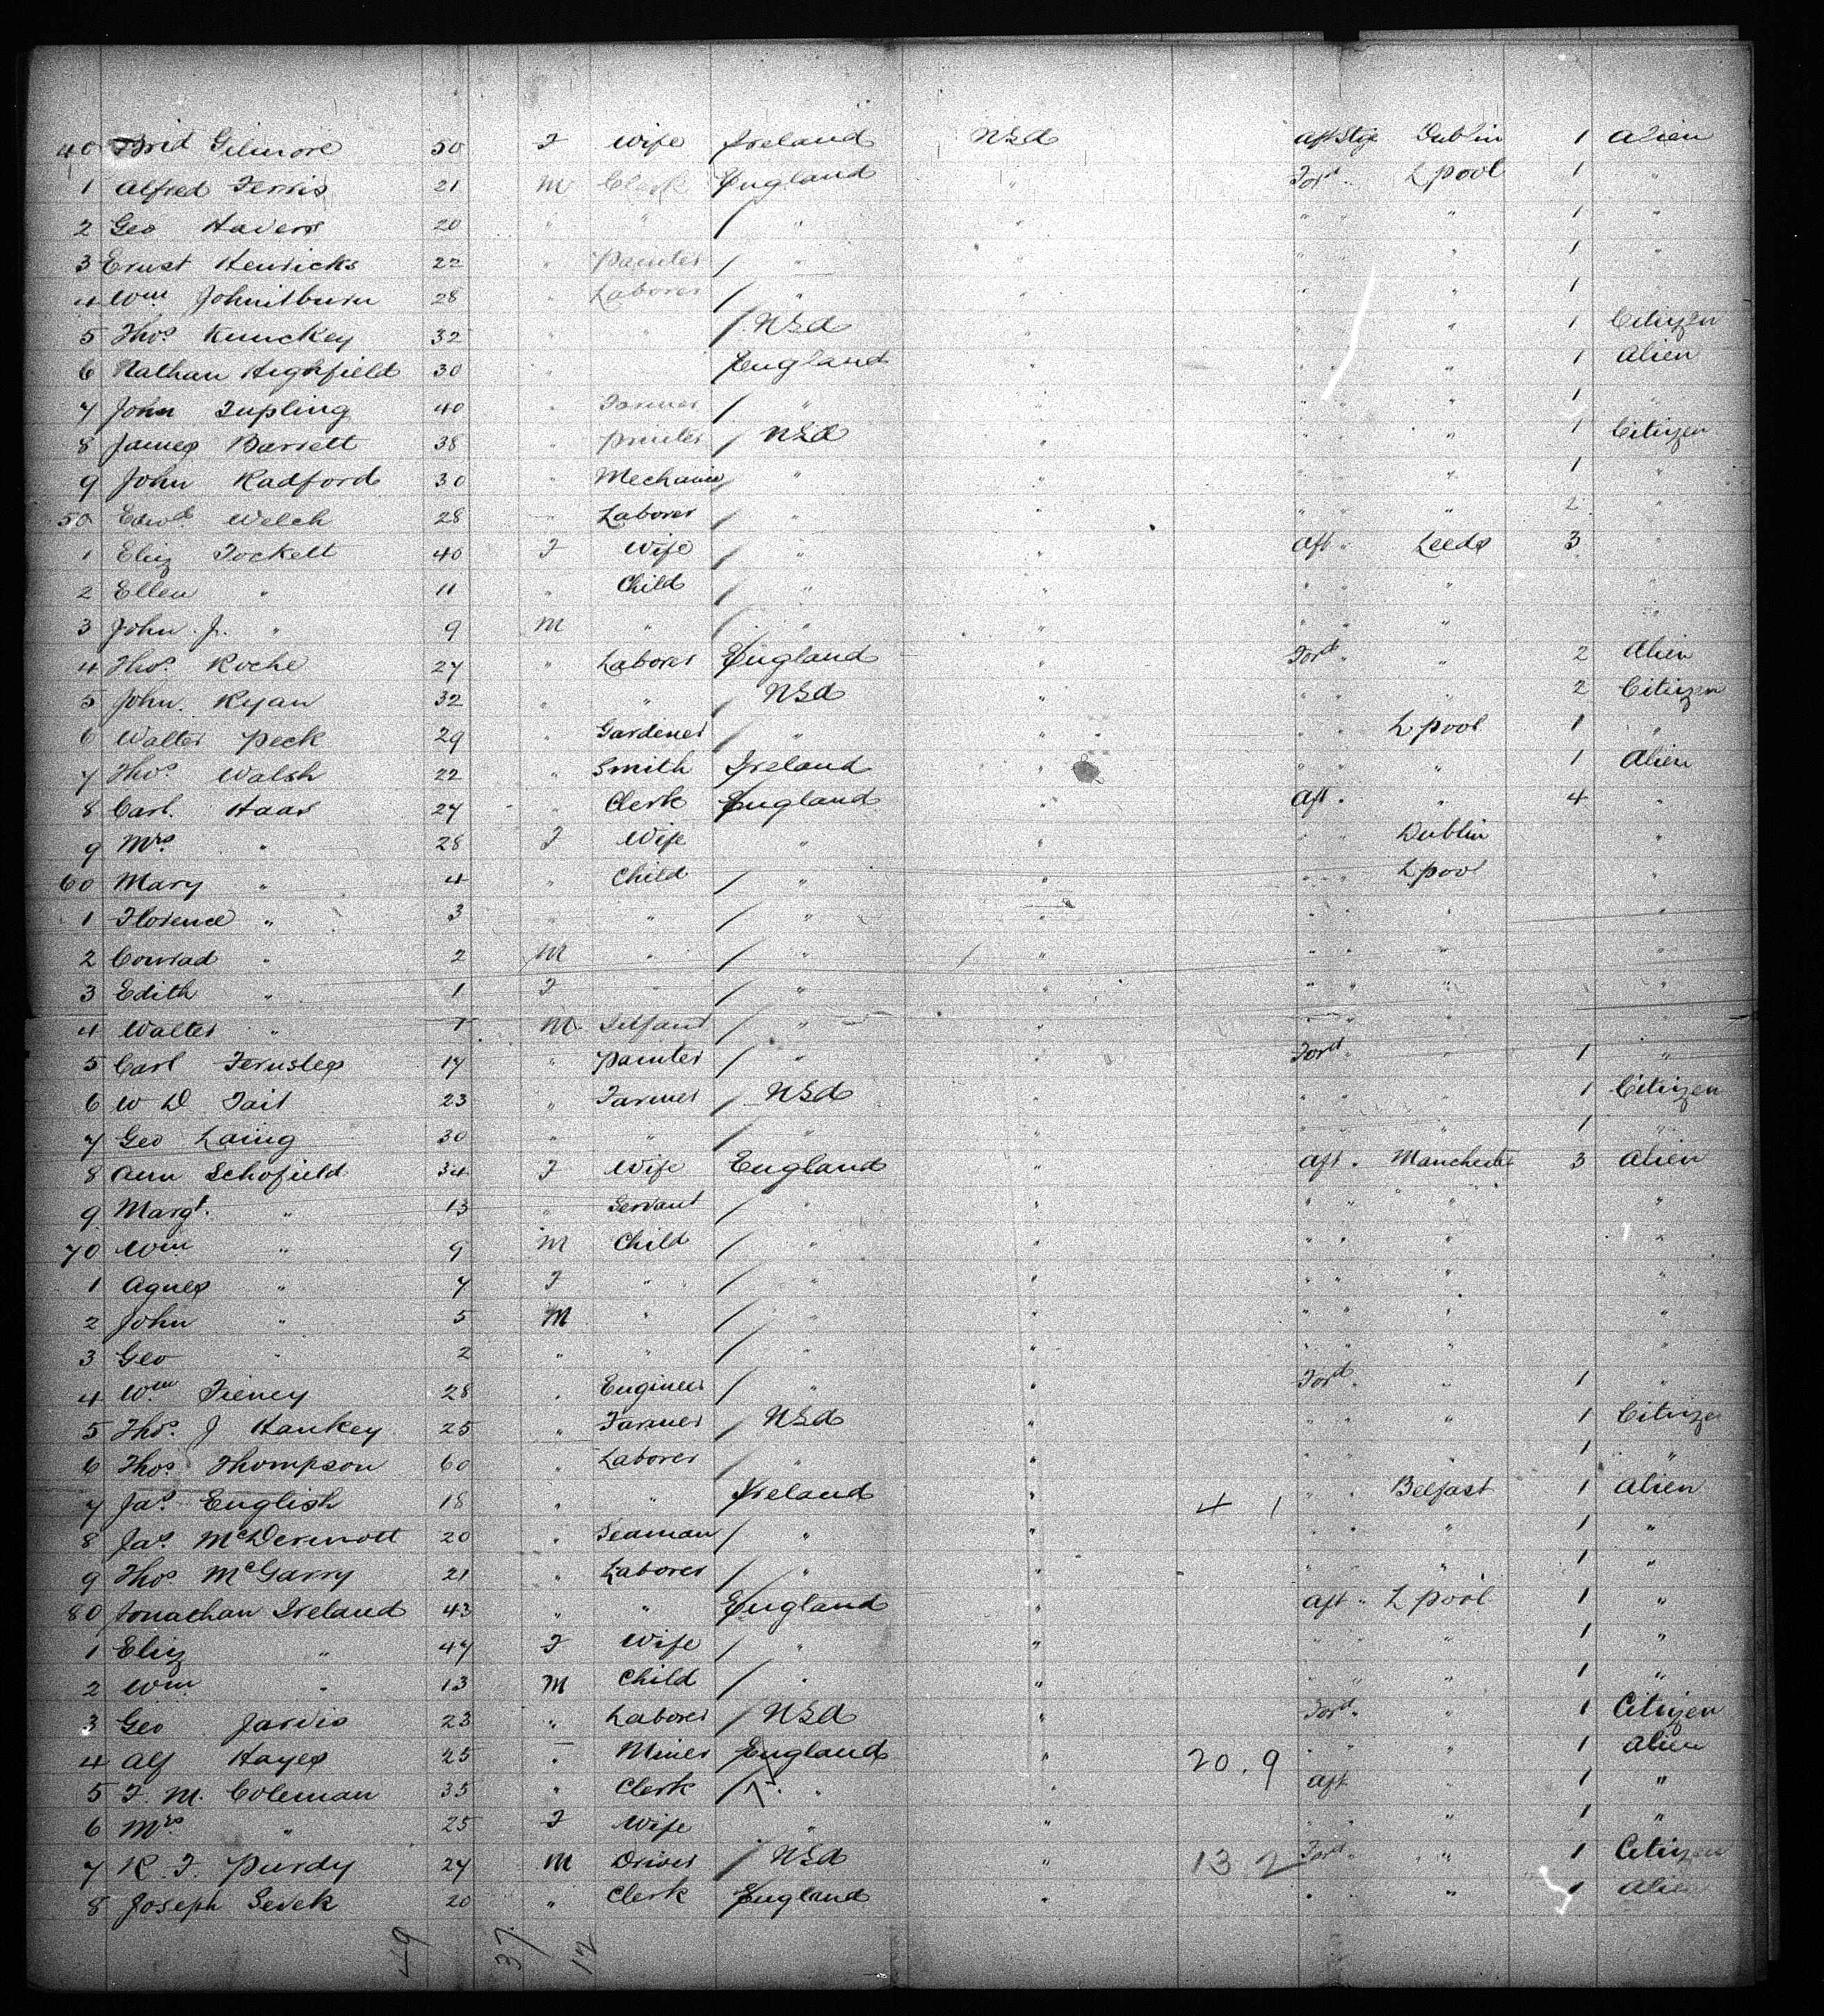 40 Brid Gilmore 50 F Wife Ireland USA Aft Stge Dublin 1 Alien
1 Alfred Ferris 21 M Clerk England " Ford " L'pool 1 "
2 Geo Havers 20 " " / " " " " " 1 "
3 Ernst Henricks 22 " Painter / " " " " 1 "
4 Wm 28 " Laborer / " " " " " 1
5 Thos Kunckey 32 " " / USA " " " 1 Citizen
6 Nathan Highfield 30 " England " " " " 1 Alien
7 John Tupling 40 " Farmer / " " " " " 1 "
8 James Barrett 38 " Printer / USA " " " " 1 Citizen
9 John Radford 30 " Mechanic / " " " " " 1 "
50 Edwd Welch 28 " Laborer / " " " " " 2 "
1 Eliz Tockett 40 F Wife / " " Aft " Leeds 3 "
2 Ellen " 11 " Child / " " " " " "
3 John J. " 9 M " / " " " " " "
4 Thos Roche 27 " Laborer England " Ford " " 2 Alien
5 John Ryan 32 " " / USA " " " " 2 Citizen
6 Walter Peck 29 " Gardener / " " " " L'pool 1 "
7 Thos Walsh 22 " Smith Ireland " " " " 1 Alien
8 Carl Haas 27 " Clerk England " Aft " " 4 "
9 Mrs " 28 F Wife " " " " Dublin "
60 Mary " 4 " Child / " " " " L'pool "
1 Florence " 3 " " / " " " " " "
2 Conrad " 2 M " / " " " " " "
3 Edith " 1 F " / " " " " " "
4 Walter " 1 M Infant / " " " " " "
5 Carl 17 " Painter / " " Ford " " 1 "
6 W D Tait 23 " Farmer / USA " " " " 1 Citizen
7 Geo Laing 30 " " / " " " " " 1 "
8 Ann Schofield 34 F Wife England " Aft " Manchester 3 Alien
9 Margt " 13 " Servant / " " " " " "
70 Wm " 9 M Child / " " " " " "
1 Agnes " 7 F " / " " " " " "
2 John " 5 M " / " " " " " "
3 Geo " 2 " " / " " " " " "
4 Wm Tieney 28 " Engineer / " " Ford " " 1 "
5 Thos J Hankey 25 " Farmer / USA " " " " 1 Citizen
6 Thos Thompson 60 " Laborer / " " " " " 1 "
7 Jas English 18 " " Ireland " 4 1 " " Belfast 1 Alien
8 Jas McDermott 20 " Seaman / " " " " " 1 "
9 Thos McGarry 21 " Laborer / " " " " " 1 "
80 Jonathan Ireland 43 " " England " Aft " L'pool 1 "
1 Eliz " 47 F Wife / " " " " " 1 "
2 Wm " 13 M Child / " " " " " 1 "
3 Geo Jarvis 23 " Laborer / USA " Ford " " 1 Citizen
4 Alf Hayes 25 " Miner England " 20.9 " " " 1 Alien
5 F. M. Coleman 35 " Clerk / " " Aft " 1 "
6 Mrs " 25 F Wife " " " " " 1 "
7 R. F. Purdy 27 M Driver / USA " 13 2 Ford " " 1 Citizen
8 Joseph 20 " Clerk England " " " " 1 Alien
49 37 12